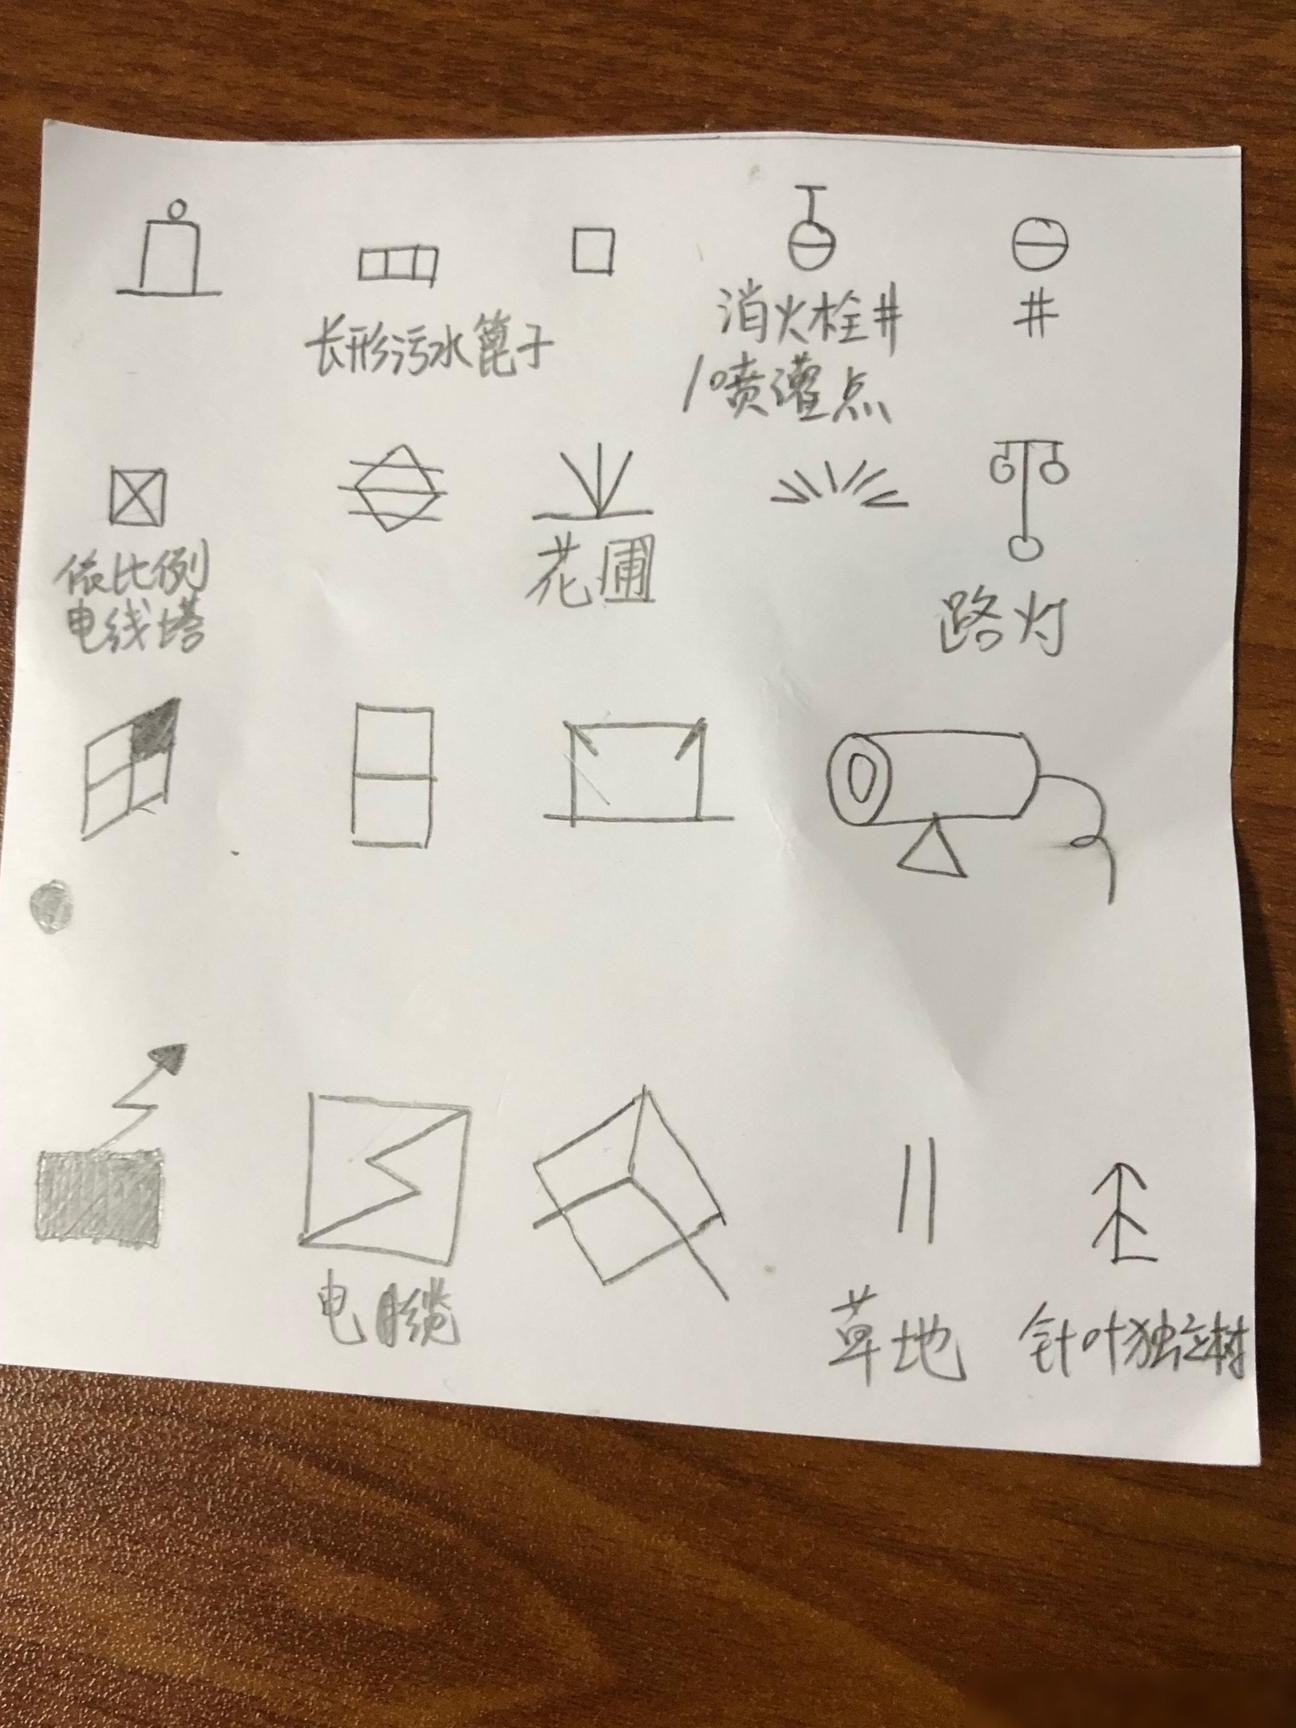 长形污水篦子
消火栓井
/喷灌点
井
依比例
电线塔
花圃
路灯
电缆
草地
针叶独立树